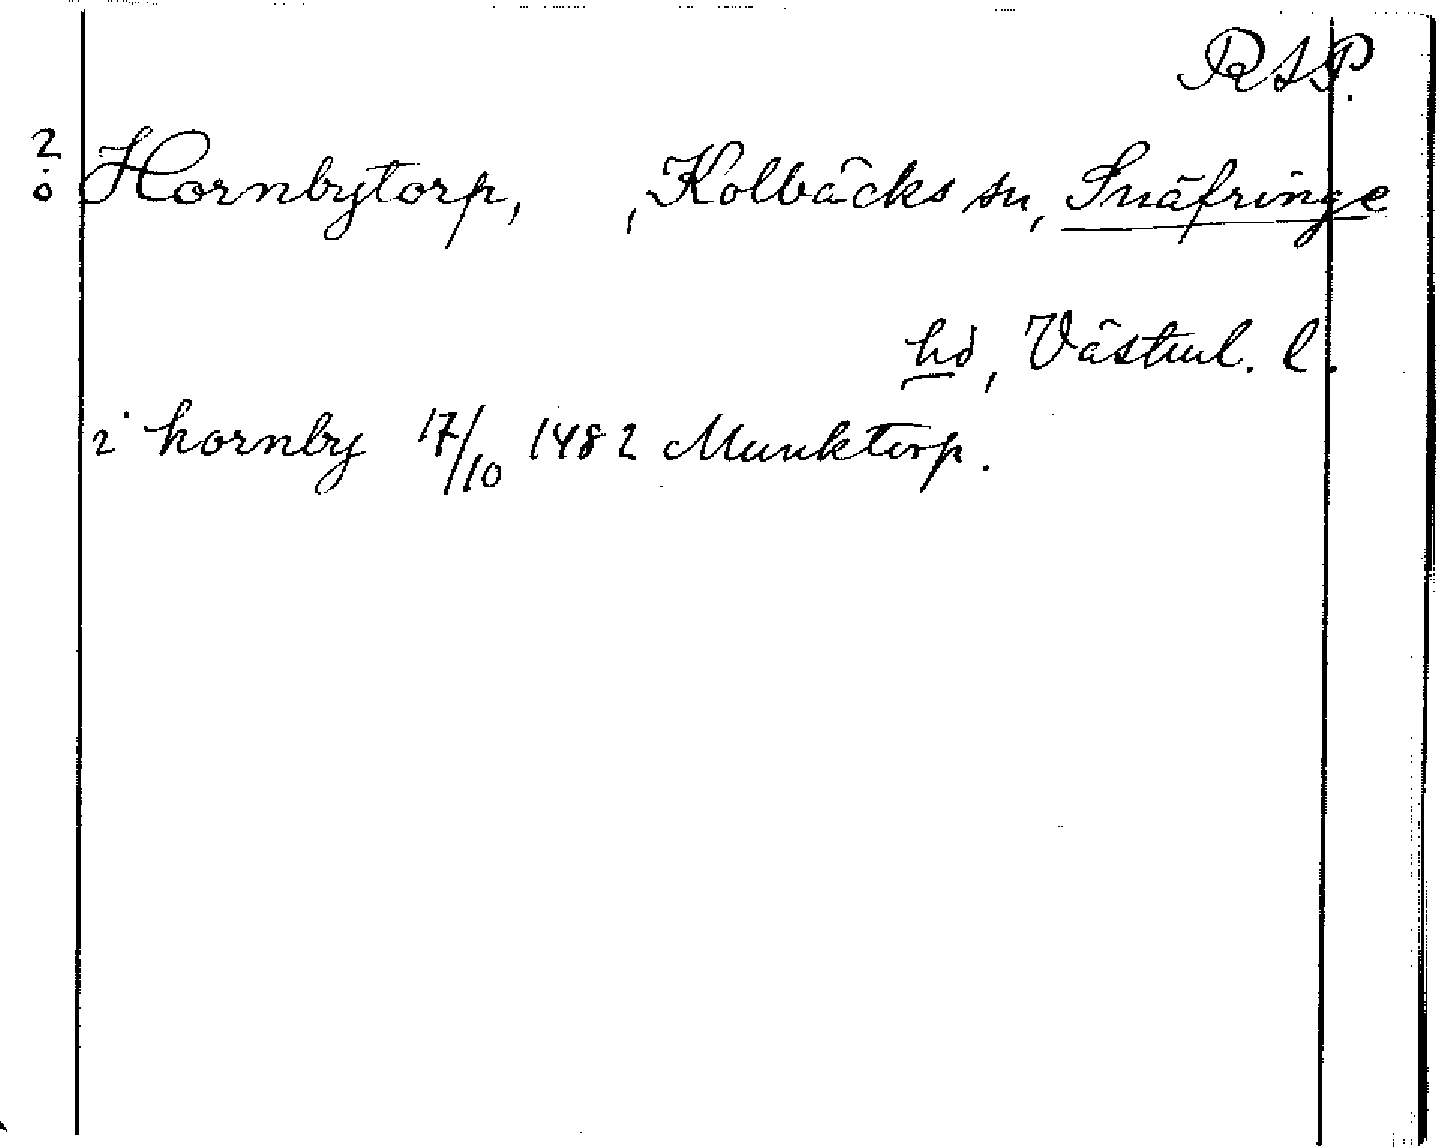 RAP.
2 Hornbytorp, , Kolbäcks sn, Snäfringe
ö
hd, Västml. l.
i hornby 17/10 1482 Munktorp.